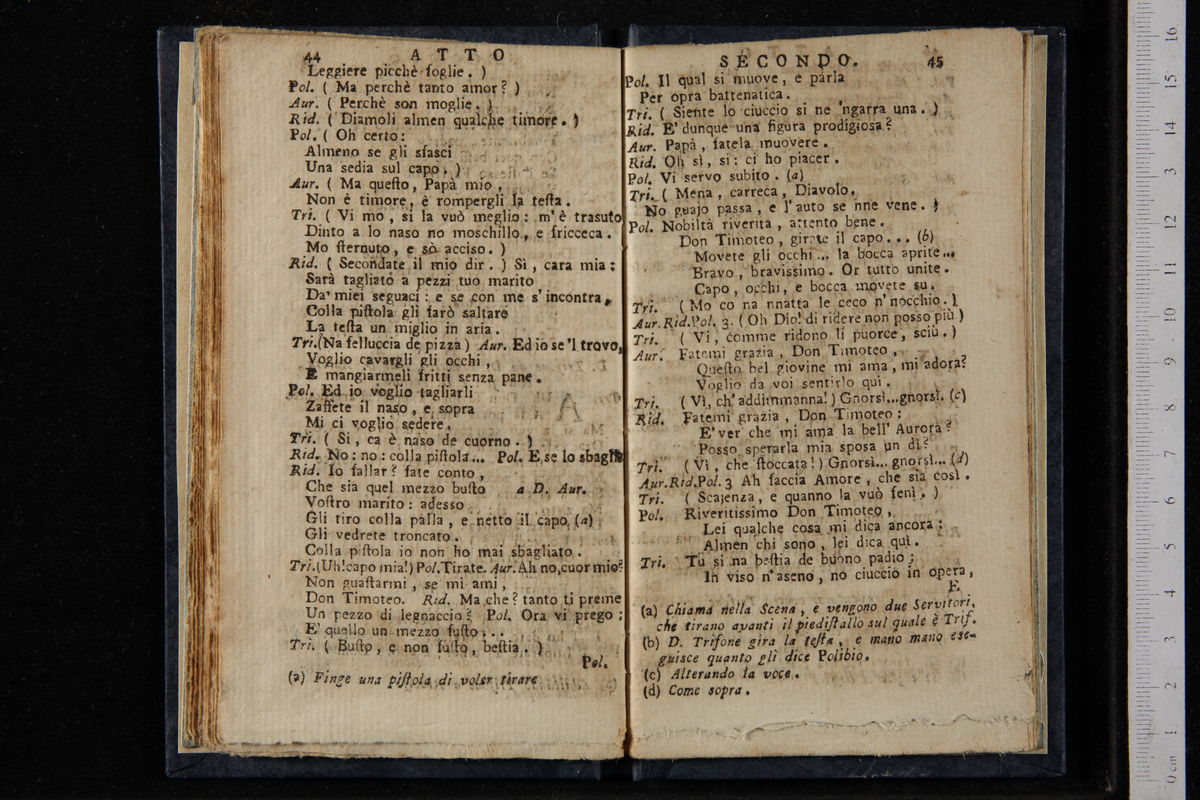 44 ATTO
Leggiere picchè foglie. )
Pol. ( Ma perchè tanto amor? )
Aur. ( Perchè son moglie. )
Rid. ( Diamoli almen qualche timore. )
Pol. ( Oh certo:
Almeno se gli sfasci
Una sedia sul capo. )
Aur. ( Ma queſto, Papà mio,
Non è timore, è rompergli la teſta.
Tri. ( Vi mo, si la vuò meglio: m'è trasuto
Dinto a lo naso no moschillo, e fricceca.
Mo ſternuto, e sò acciso. )
Rid. ( Secondate il mio dir. ) Sì, cara mia:
Sarà tagliato a pezzi tuo marito
Da' miei seguaci: e se con me s'incontra,
Colla piſtola gli farò saltare
La teſta un miglio in aria.
Tri. (Na felluccia de pizza) Aur. Ed io se 'l trovo,
Voglio cavargli gli occhi,
E mangiarmeli fritti senza pane.
Pol. Ed io voglio tagliarli
Zaffete il naso, e sopra
Mi ci voglio sedere.
Tri. ( Si, ca è naso de cuorno. )
Rid. No: no: colla piſtola... Pol. E se lo sbaglj?
Rid. Io fallar? fate conto,
Che sia quel mezzo buſto a D. Aur.
Voſtro marito: adesso
Gli tiro colla palla, e netto il capo (a)
Gli vedrete troncato.
Colla piſtola io non ho mai sbagliato.
Tri. (Uh! capo mia!) Pol. Tirate. Aur. Ah no, cuor mio?
Non guaſtarmi, se mi ami,
Don Timoteo. Rid. Ma che? tanto ti preme
Un pezzo di legnaccio? Pol. Ora vi prego:
E' quello un mezzo fuſto...
Tri. ( Buſto, e non fuſto, beſtia. )
Pol.
(a) Finge una piſtola di voler tirare
SECONDO. 45
Pol. Il qual si muove, e parla
Per opra battenatica.
Tri. ( Siente lo ciuccio si ne 'ngarra una. )
Rid. E' dunque una figura prodigiosa?
Aur. Papà, fatela muovere.
Rid. Oh sì, sì: ci ho piacer.
Pol. Vi servo subito. (a)
Tri. ( Mena, carreca, Diavolo.
No guajo passa, e l'auto se nne vene. )
Pol. Nobiltà riverita, attento bene.
Don Timoteo, girate il capo... (b)
Movete gli occhi... la bocca aprite...
Bravo, bravissimo. Or tutto unite.
Capo, occhi, e bocca movete su.
Tri. ( Mo co na nnatta le ceco n'nocchio. )
Aur. Rid. Pol. 3. ( Oh Dio! di ridere non posso più )
Tri. ( Vi, comme ridono li puorce, sciù. )
Aur. Fatemi grazia, Don Timoteo,
Queſto bel giovine mi ama, mi adora?
Voglio da voi sentirlo quì.
Tri. ( Vì, ch'addimmanna! ) Gnorsì...gnorsì. (c)
Rid. Fatemi grazia, Don Timoteo:
E' ver che mi ama la bell' Aurora?
Posso sperarla mia sposa un dì?
Tri. ( Vì, che ſtoccata! ) Gnorsì... gnorsì... (d)
Aur. Rid. Pol. 3 Ah faccia Amore, che sia così.
Tri. ( Scajenza, e quanno la vuò fenì. )
Pol. Riveritissimo Don Timoteo,
Lei qualche cosa mi dica ancora:
Almen chi sono, lei dica quì.
Tri. Tu si na beſtia de buono padio;
In viso n'aseno, no ciuccio in opera,
E
(a) Chiama nella Scena, e vengono due Servitori,
che tirano avanti il piediſtallo sul quale è Trif.
(b) D. Trifone gira la teſta, e mano mano ese-
guisce quanto gli dice Polibio.
(c) Alterando la voce.
(d) Come sopra.
0 cm 1 2 3 4 5 6 7 8 9 10 11 12 13 14 15 16